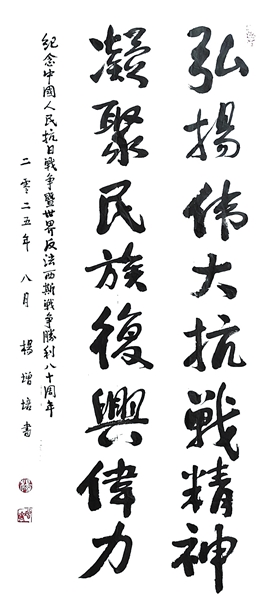 弘揚伟大抗戰精神
凝聚民族復興偉力
紀念中國人民抗日戰争暨世界反法西斯戰争勝利八十周年
二零二五年 八月 楊增培書